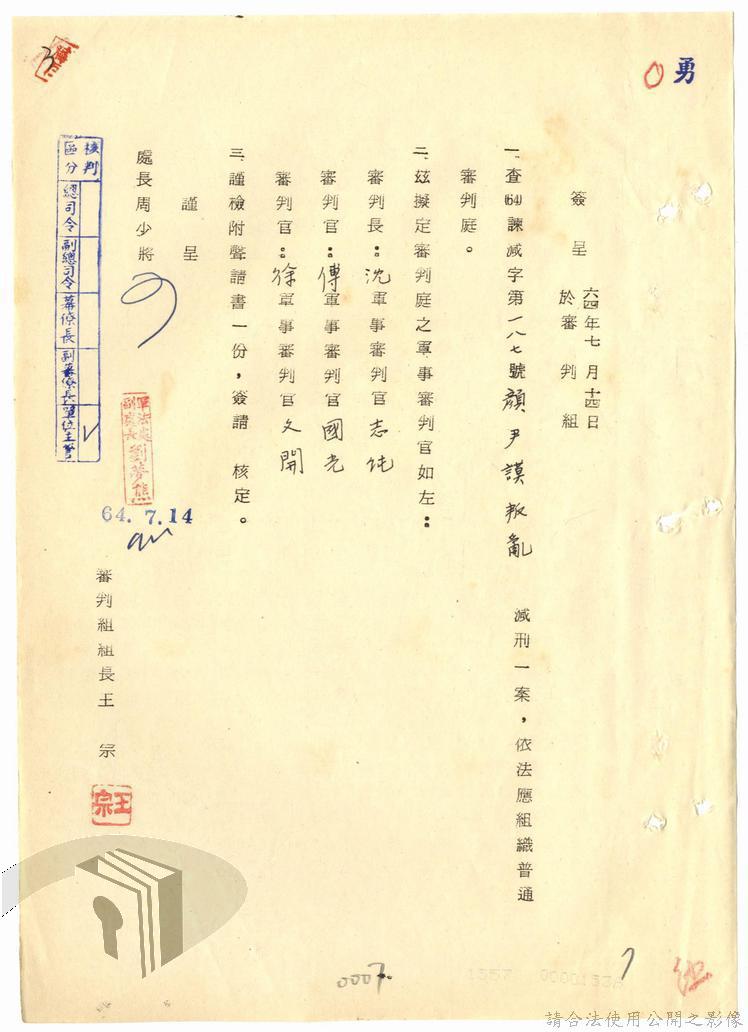 勇
簽呈
六四年七月十四日
於審判組
一、查(64)諫減字第一八七號顏尹謨叛亂 減刑一案，依法應組織普通
審判庭。
二、茲擬定審判庭之軍事審判官如左：
審判長：沈軍事審判官志純
審判官：傅軍事審判官國光
審判官：徐軍事審判官文開
三、謹檢附聲請書一份，簽請 核定。
謹呈
處長周少將
軍法處
副處長 劉夢熊
64.7.14
審判組組長王 宗
王宗
核判
區分
總司令
副總司令
幕僚長
副幕僚長
單位主管
0007
1557
請合法使用公開之影像